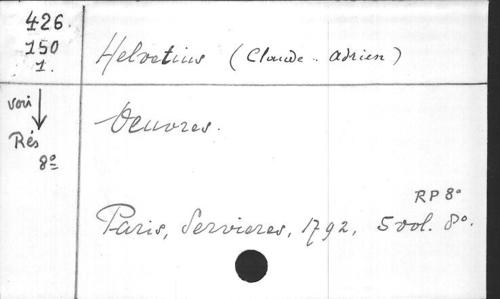 426.
150
1.
Helvetius (Claude-Adrien)
voir
Rés
8º
Oeuvres.
RP 8º
Paris, Servieres, 1792, 5 vol. 8º.